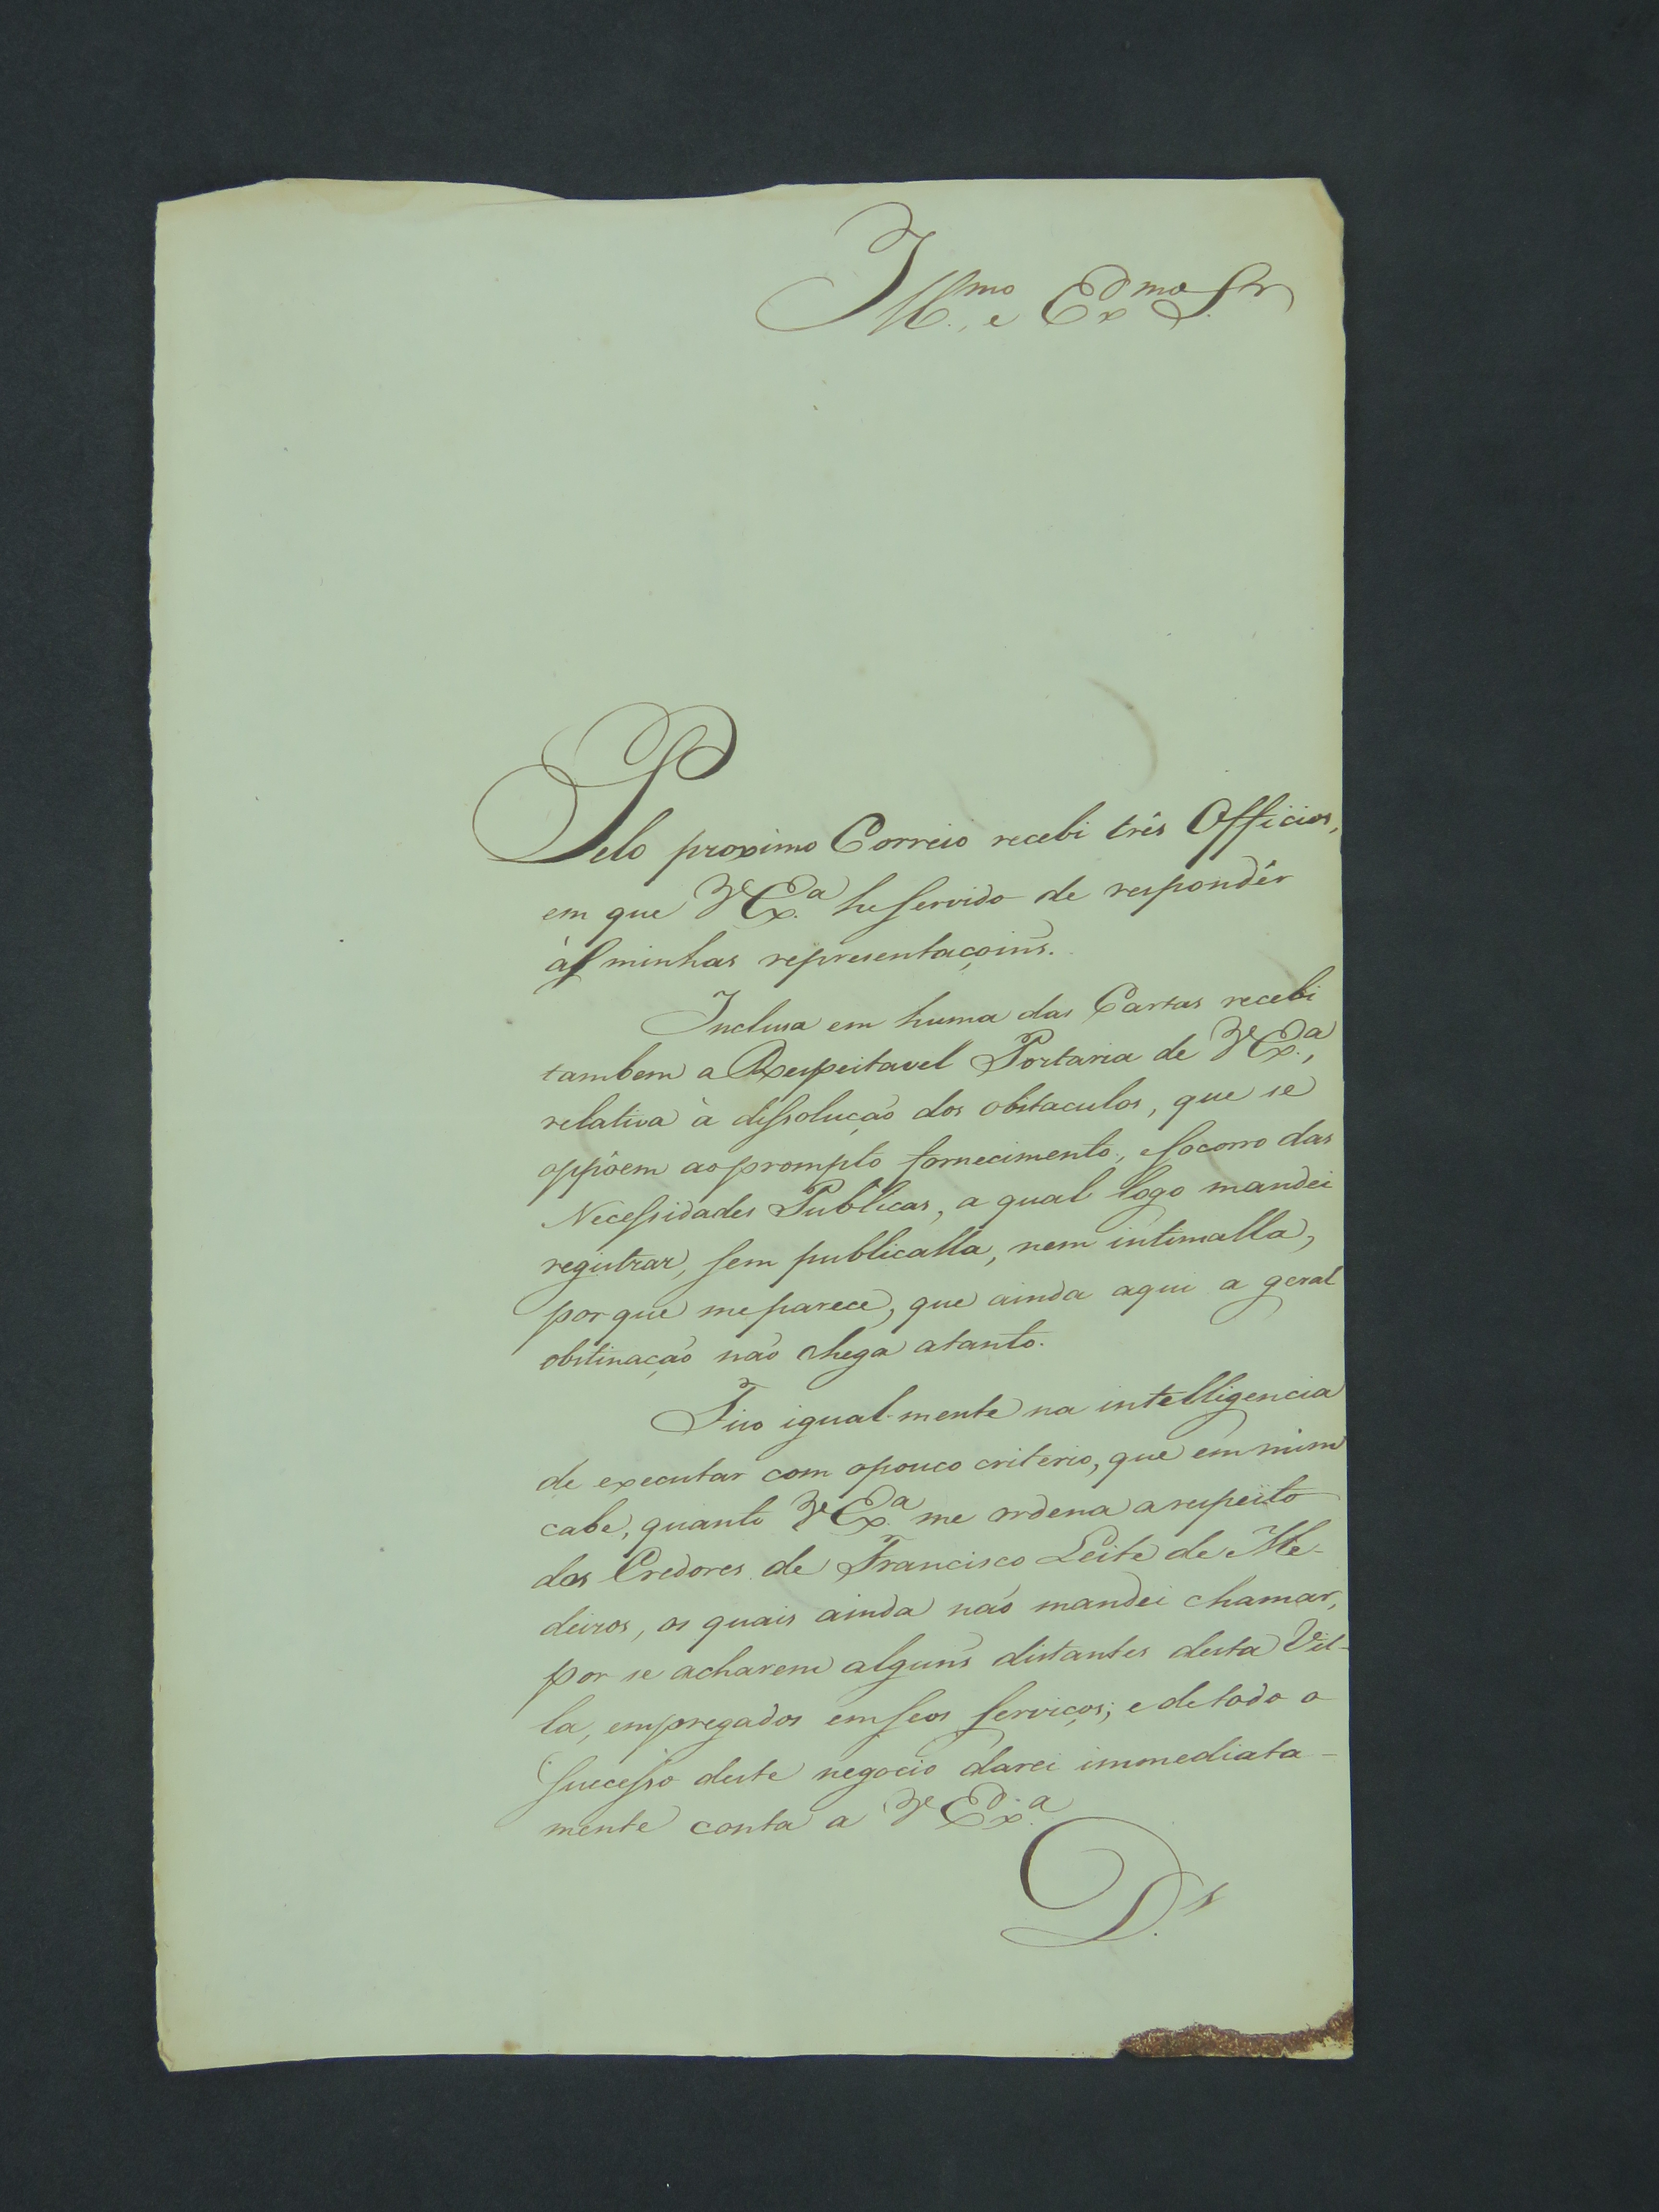 Ill.mo e Ex.mo Sr
Pelo proximo Correio recebi três Officios,
em que V Ex.a he servido de respondêr
às minhas representaçoins.
Inclusa em huma das Cartas recebi
tambem a Respeitavel Portaria de V Ex.a,
relativa à dissolução dos obstaculos, que se
oppôem ao prompto fornecimento, e socorro das
Necessidades Publicas, a qual logo mandei
registrar, sem publicalla, nem intimalla,
por que me parece, que ainda aqui a geral
obstinação não chega a tanto.
Fico igual-mente na intelligencia
de executar com o pouco criterio, que em mim
cabe, quanto V Ex.a me ordena a respeito
dos Credores de Francisco Leite de Me-
deiros, os quais ainda não mandei chamar,
por se acharem alguns distantes desta Vil-
la, empregados em seos serviços; e de todo o
Sucesso deste negocio darei immediata-
mente conta a V Ex.a
D.s